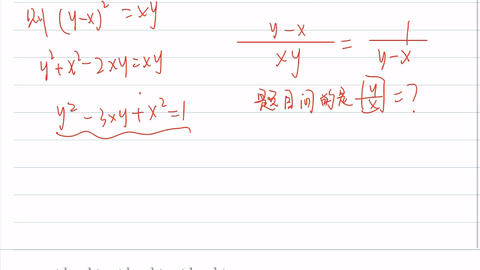 则 (y-x)² = xy
y²+x²-2xy=xy
y²-3xy+x²=1
(y-x)/(xy) = 1/(y-x)
题目问的是 |y/x| = ?